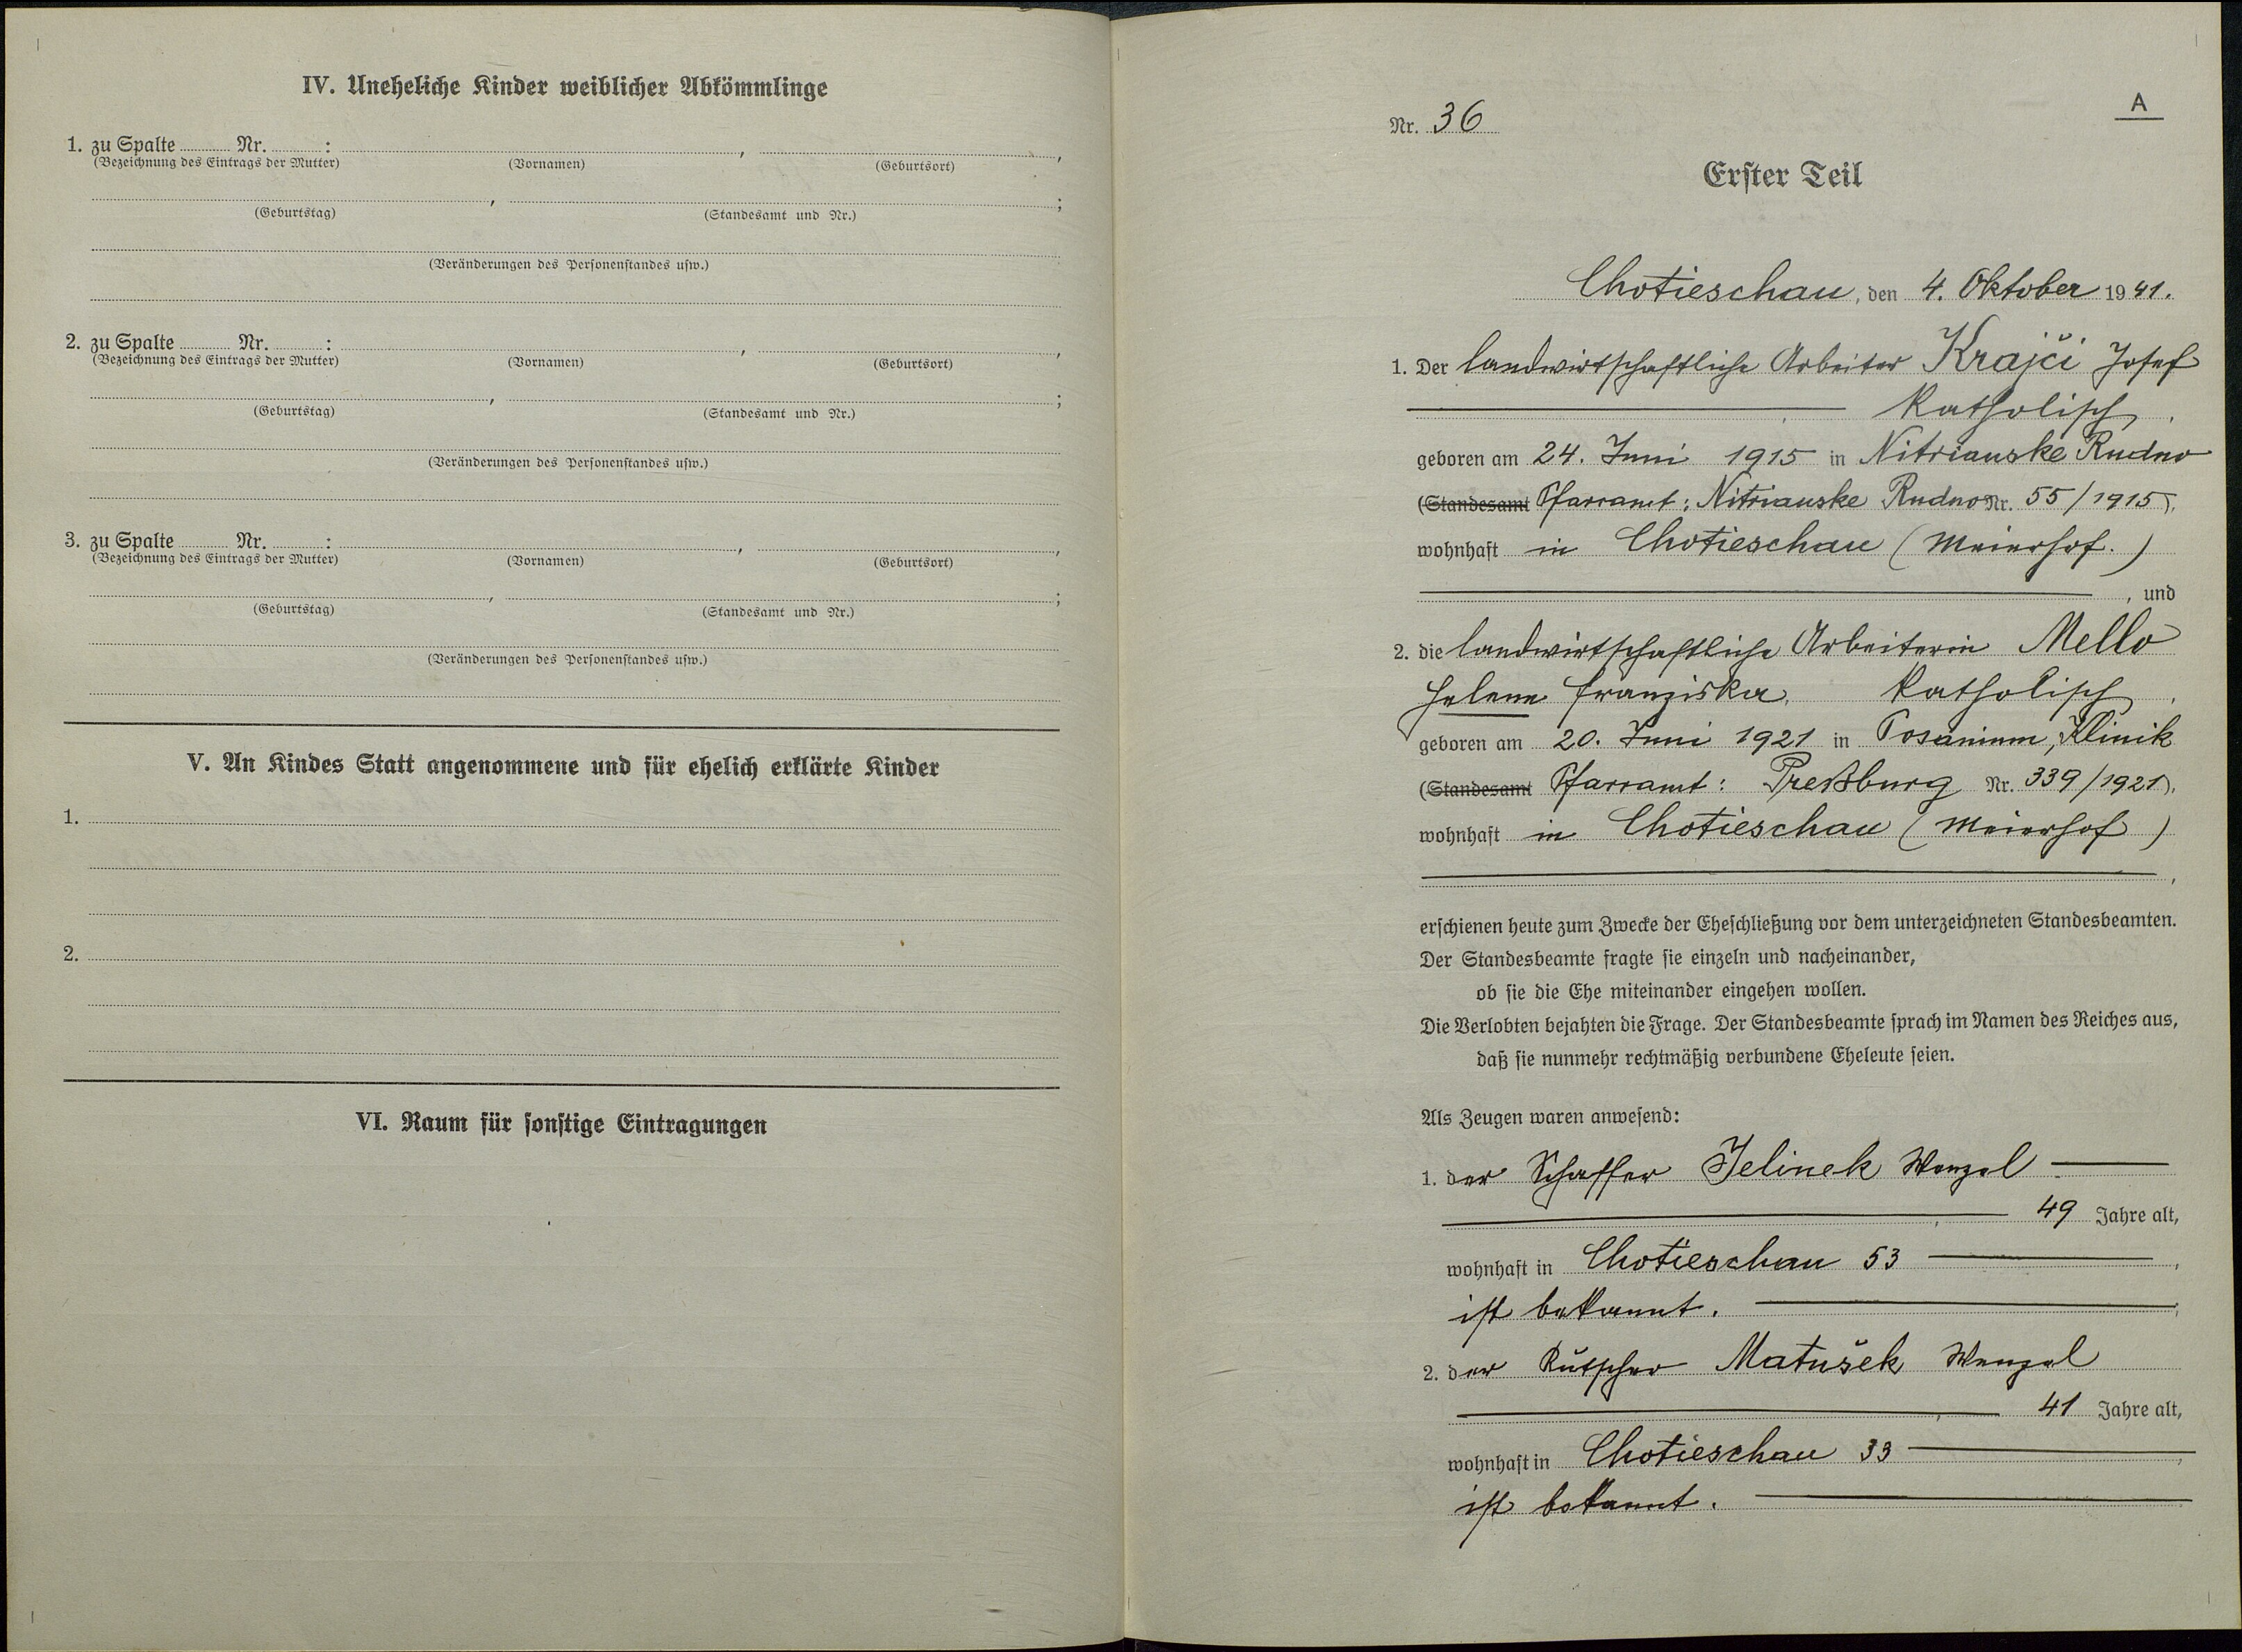 IV. Uneheliche Kinder weiblicher Abkömmlinge
1. zu Spalte Nr. : , ,
(Bezeichnung des Eintrags der Mutter) (Vornamen) (Geburtsort)
, ;
(Geburtstag) (Standesamt und Nr.)
(Veränderungen des Personenstandes usw.)
2. zu Spalte Nr. : , ,
(Bezeichnung des Eintrags der Mutter) (Vornamen) (Geburtsort)
, ;
(Geburtstag) (Standesamt und Nr.)
(Veränderungen des Personenstandes usw.)
3. zu Spalte Nr. : , ,
(Bezeichnung des Eintrags der Mutter) (Vornamen) (Geburtsort)
, ;
(Geburtstag) (Standesamt und Nr.)
(Veränderungen des Personenstandes usw.)
V. An Kindes Statt angenommene und für ehelich erklärte Kinder
1.
2.
VI. Raum für sonstige Eintragungen
A
Nr. 36
Erster Teil
Chotieschau, den 4. Oktober 1941.
1. Der landwirtschaftliche Arbeiter Krajči Josef
katholisch,
geboren am 24. Juni 1915 in Nitrianske Rudno
(Standesamt Pfarramt: Nitrianske Rudno Nr. 55/1915),
wohnhaft in Chotieschau (Meierhof.)
, und
2. die landwirtschaftliche Arbeiterin Mello
Helene Franziska, katholisch,
geboren am 20. Juni 1921 in Posanium, Klinik
(Standesamt Pfarramt: Preßburg Nr. 339/1921),
wohnhaft in Chotieschau (Meierhof)
,
erschienen heute zum Zwecke der Eheschließung vor dem unterzeichneten Standesbeamten.
Der Standesbeamte fragte sie einzeln und nacheinander,
ob sie die Ehe miteinander eingehen wollen.
Die Verlobten bejahten die Frage. Der Standesbeamte sprach im Namen des Reiches aus,
daß sie nunmehr rechtmäßig verbundene Eheleute seien.
Als Zeugen waren anwesend:
1. der Schaffer Jelinek Wenzel
, 49 Jahre alt,
wohnhaft in Chotieschau 53 ,
ist bekannt. ;
2. der Kutscher Matušek Wenzel
, 41 Jahre alt,
wohnhaft in Chotieschau 33 ,
ist bekannt.